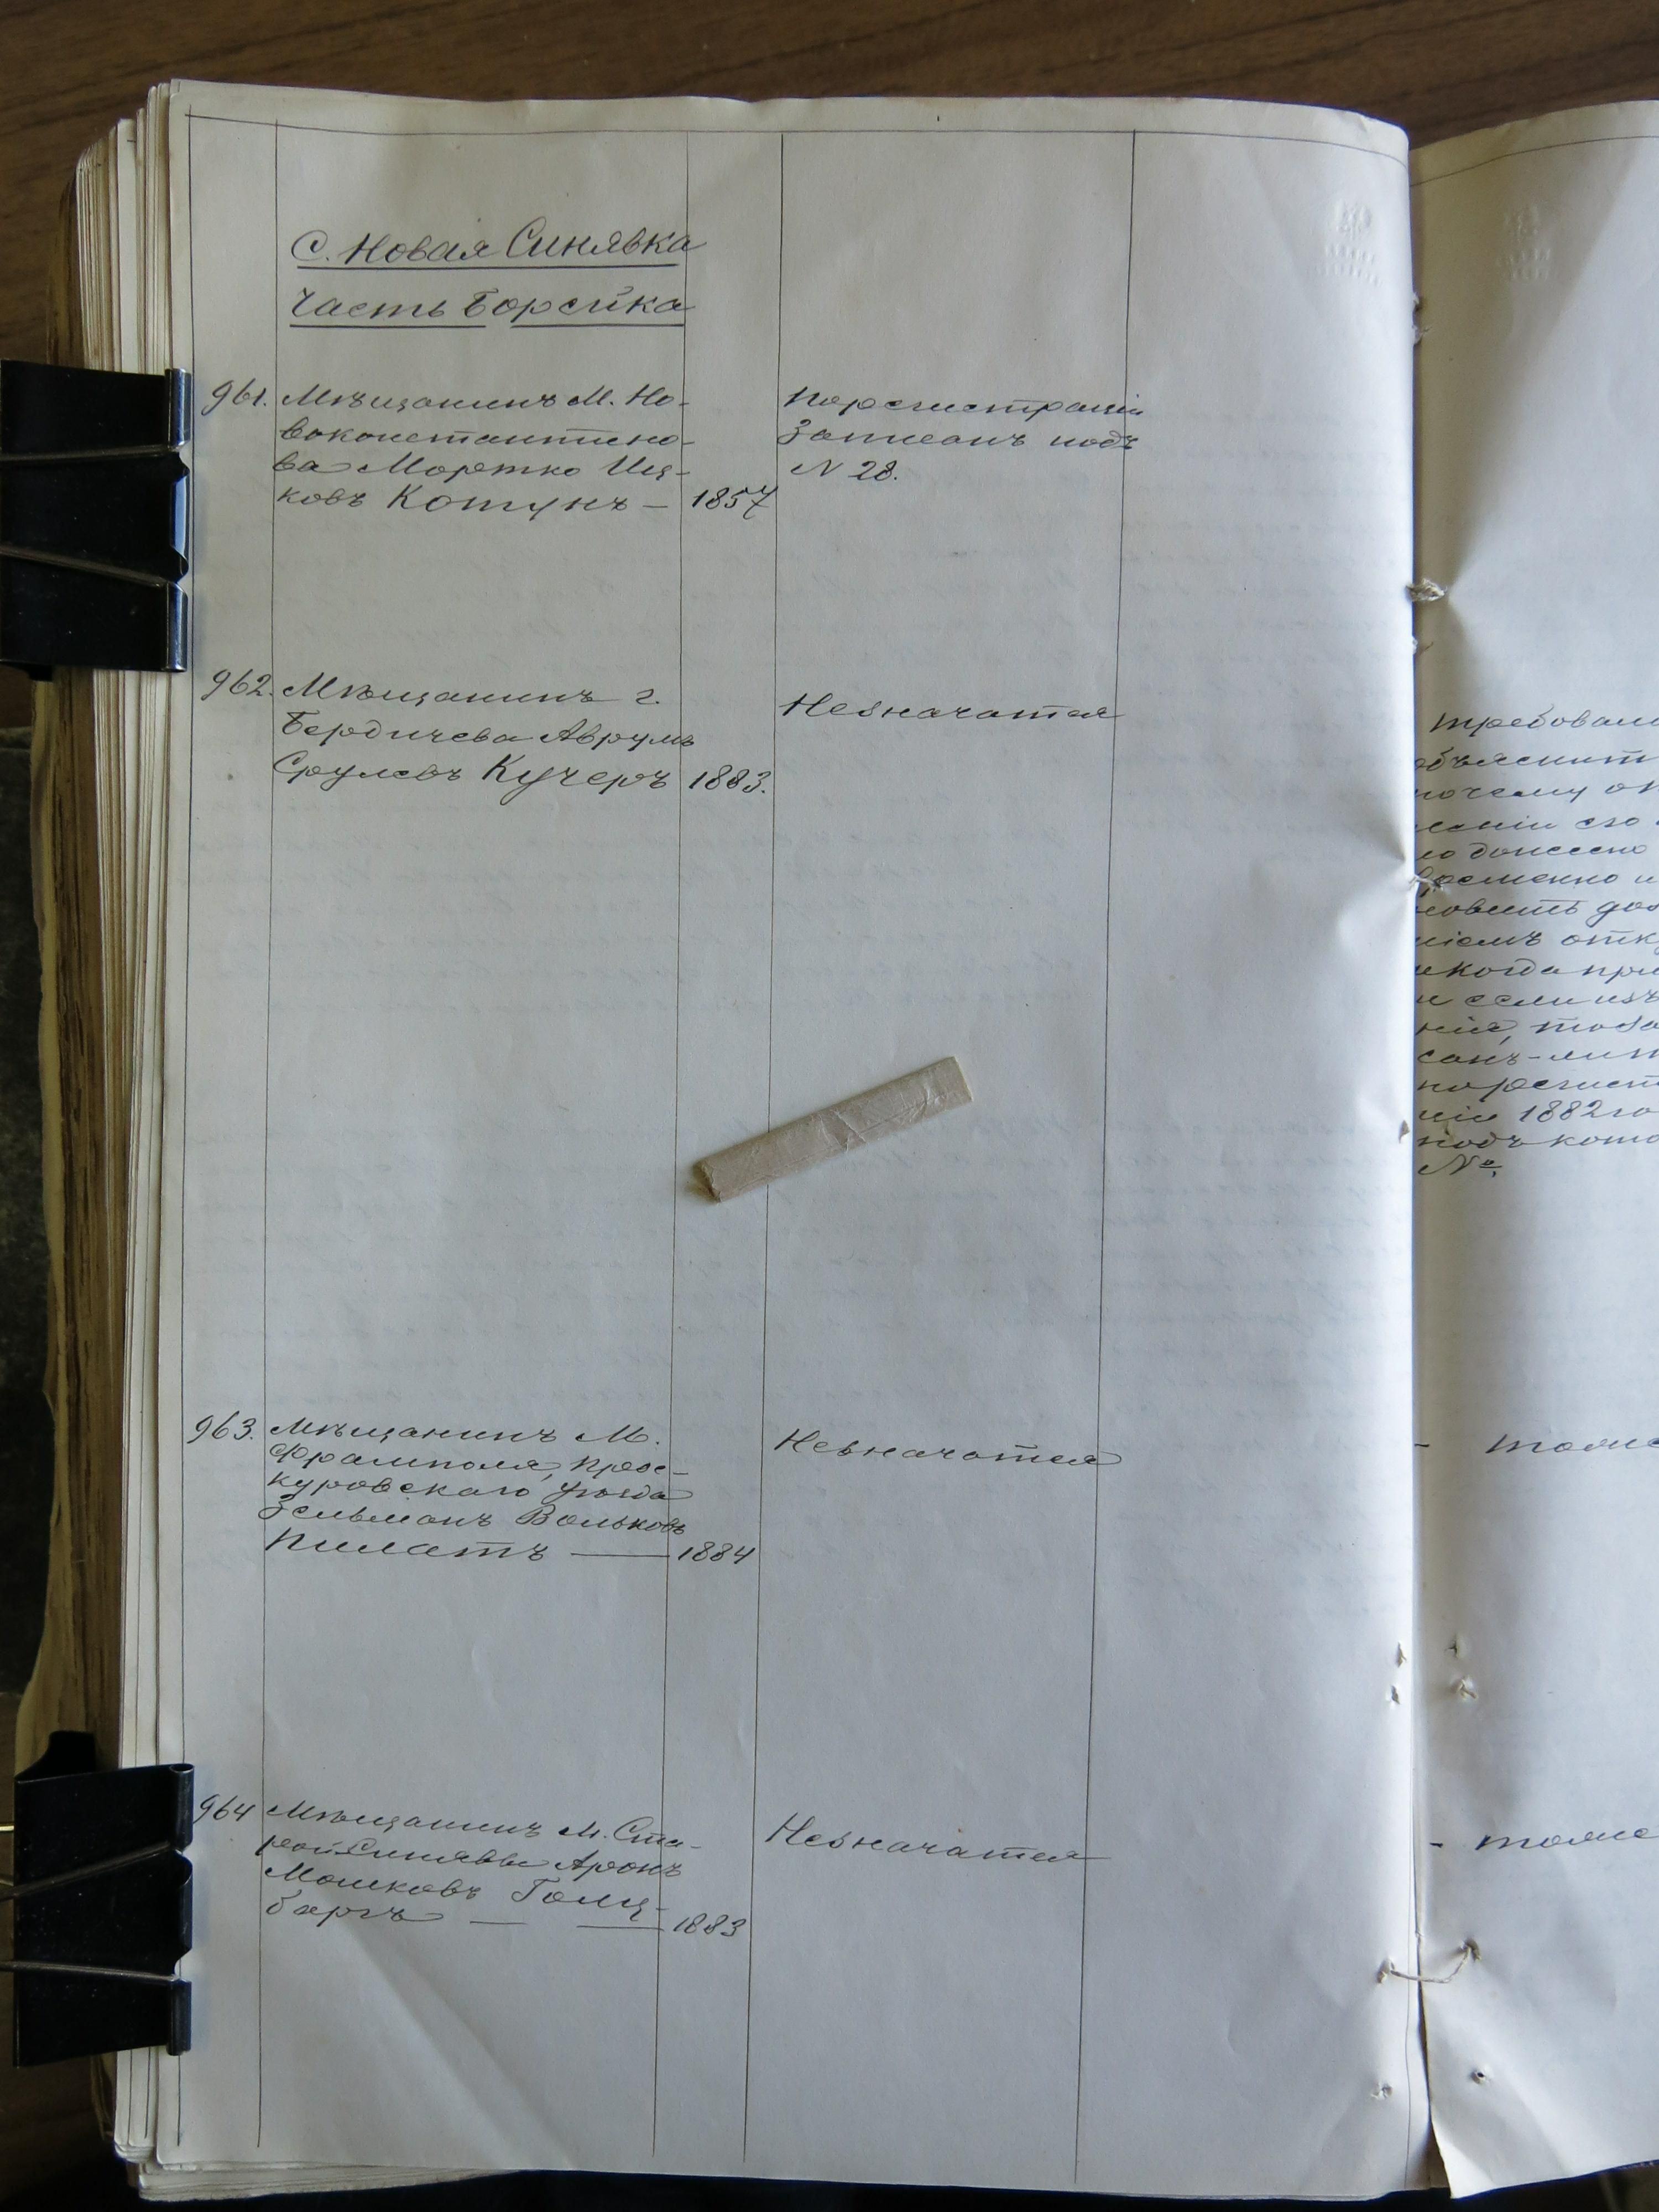 С. Новая Синявка
часть Борсука
961. Мѣщанинъ М. Но-
воконстантино-
ва Мортко Иц-
ковъ Котунъ — 1857
По регистраціи
записанъ подъ
N 28.
962. Мѣщанинъ г.
Бердичева Аврумъ
Срулевъ Кучеръ 1883.
Незначатся
963. Мѣщанинъ М.
Фрамполя, Прос-
куровскаго уѣзда
Зельманъ Вольковъ
Пилатъ — 1884
Незначатся
964 Мѣщанинъ М. Ста-
рой Синявы Аронъ
Мошковъ Голц-
баргъ — — 1883
Незначатся
требован
объяснит
почему он
леніи его
но донесено
временно и
новить доз
ніемъ отк
и когда при
и если изъ
нія, то за
санъ-ли
по регист
ціи 1882 го
подъ кото
№
- тоже
- тоже